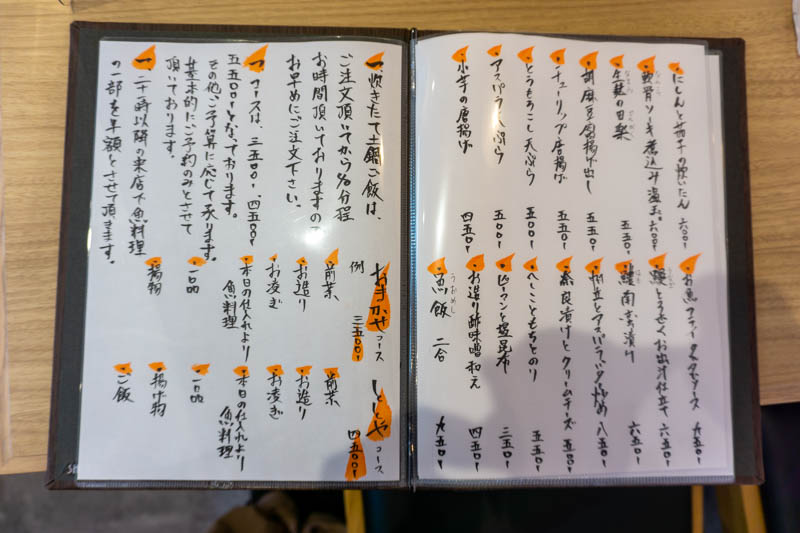 ・にしんと茄子の炊いたん 六〇〇
・軟骨ソーキ煮込み 温玉 六〇〇
なまふ でんがく
・生麩の田楽 五五〇
・胡麻豆腐揚げ出し 五五〇
・チューリップ唐揚げ 五五〇
・とうもろこし天ぷら 五〇〇
・アスパラ天ぷら 五〇〇
・小芋の唐揚げ 四五〇
・お魚フライ タルタルソース 九五〇
・鰻とうざく お出汁仕立て 六五〇
六五〇
とアスパラバター炒め 八五〇
・奈良漬けとクリームチーズ 五五〇
・へしこともちとのり 五五〇
・ピーマンと塩昆布 三五〇
・お造り酢味噌和え 四五〇
うおめし
・魚飯 二合 九五〇
一、炊きたて土鍋ご飯は、
ご注文頂いてから 分程
お時間頂いておりますので
お早めにご注文下さい。
一、コースは、三五〇〇・四五〇〇
五五〇〇となっております。
その他ご予算に応じて承ります。
基本的にご予約のみとさせて
頂いております。
一、二十時以降の来店で魚料理
の一部を半額とさせて頂きます。
おまかせコース 三五〇〇
例
・前菜
・お造り
・お凌ぎ
・本日の仕入れより
魚料理
・一品
・揚物
ととやコース 四五〇〇
・前菜
・お造り
・お凌ぎ
・本日の仕入れより
魚料理
・一品
・揚げ物
・ご飯